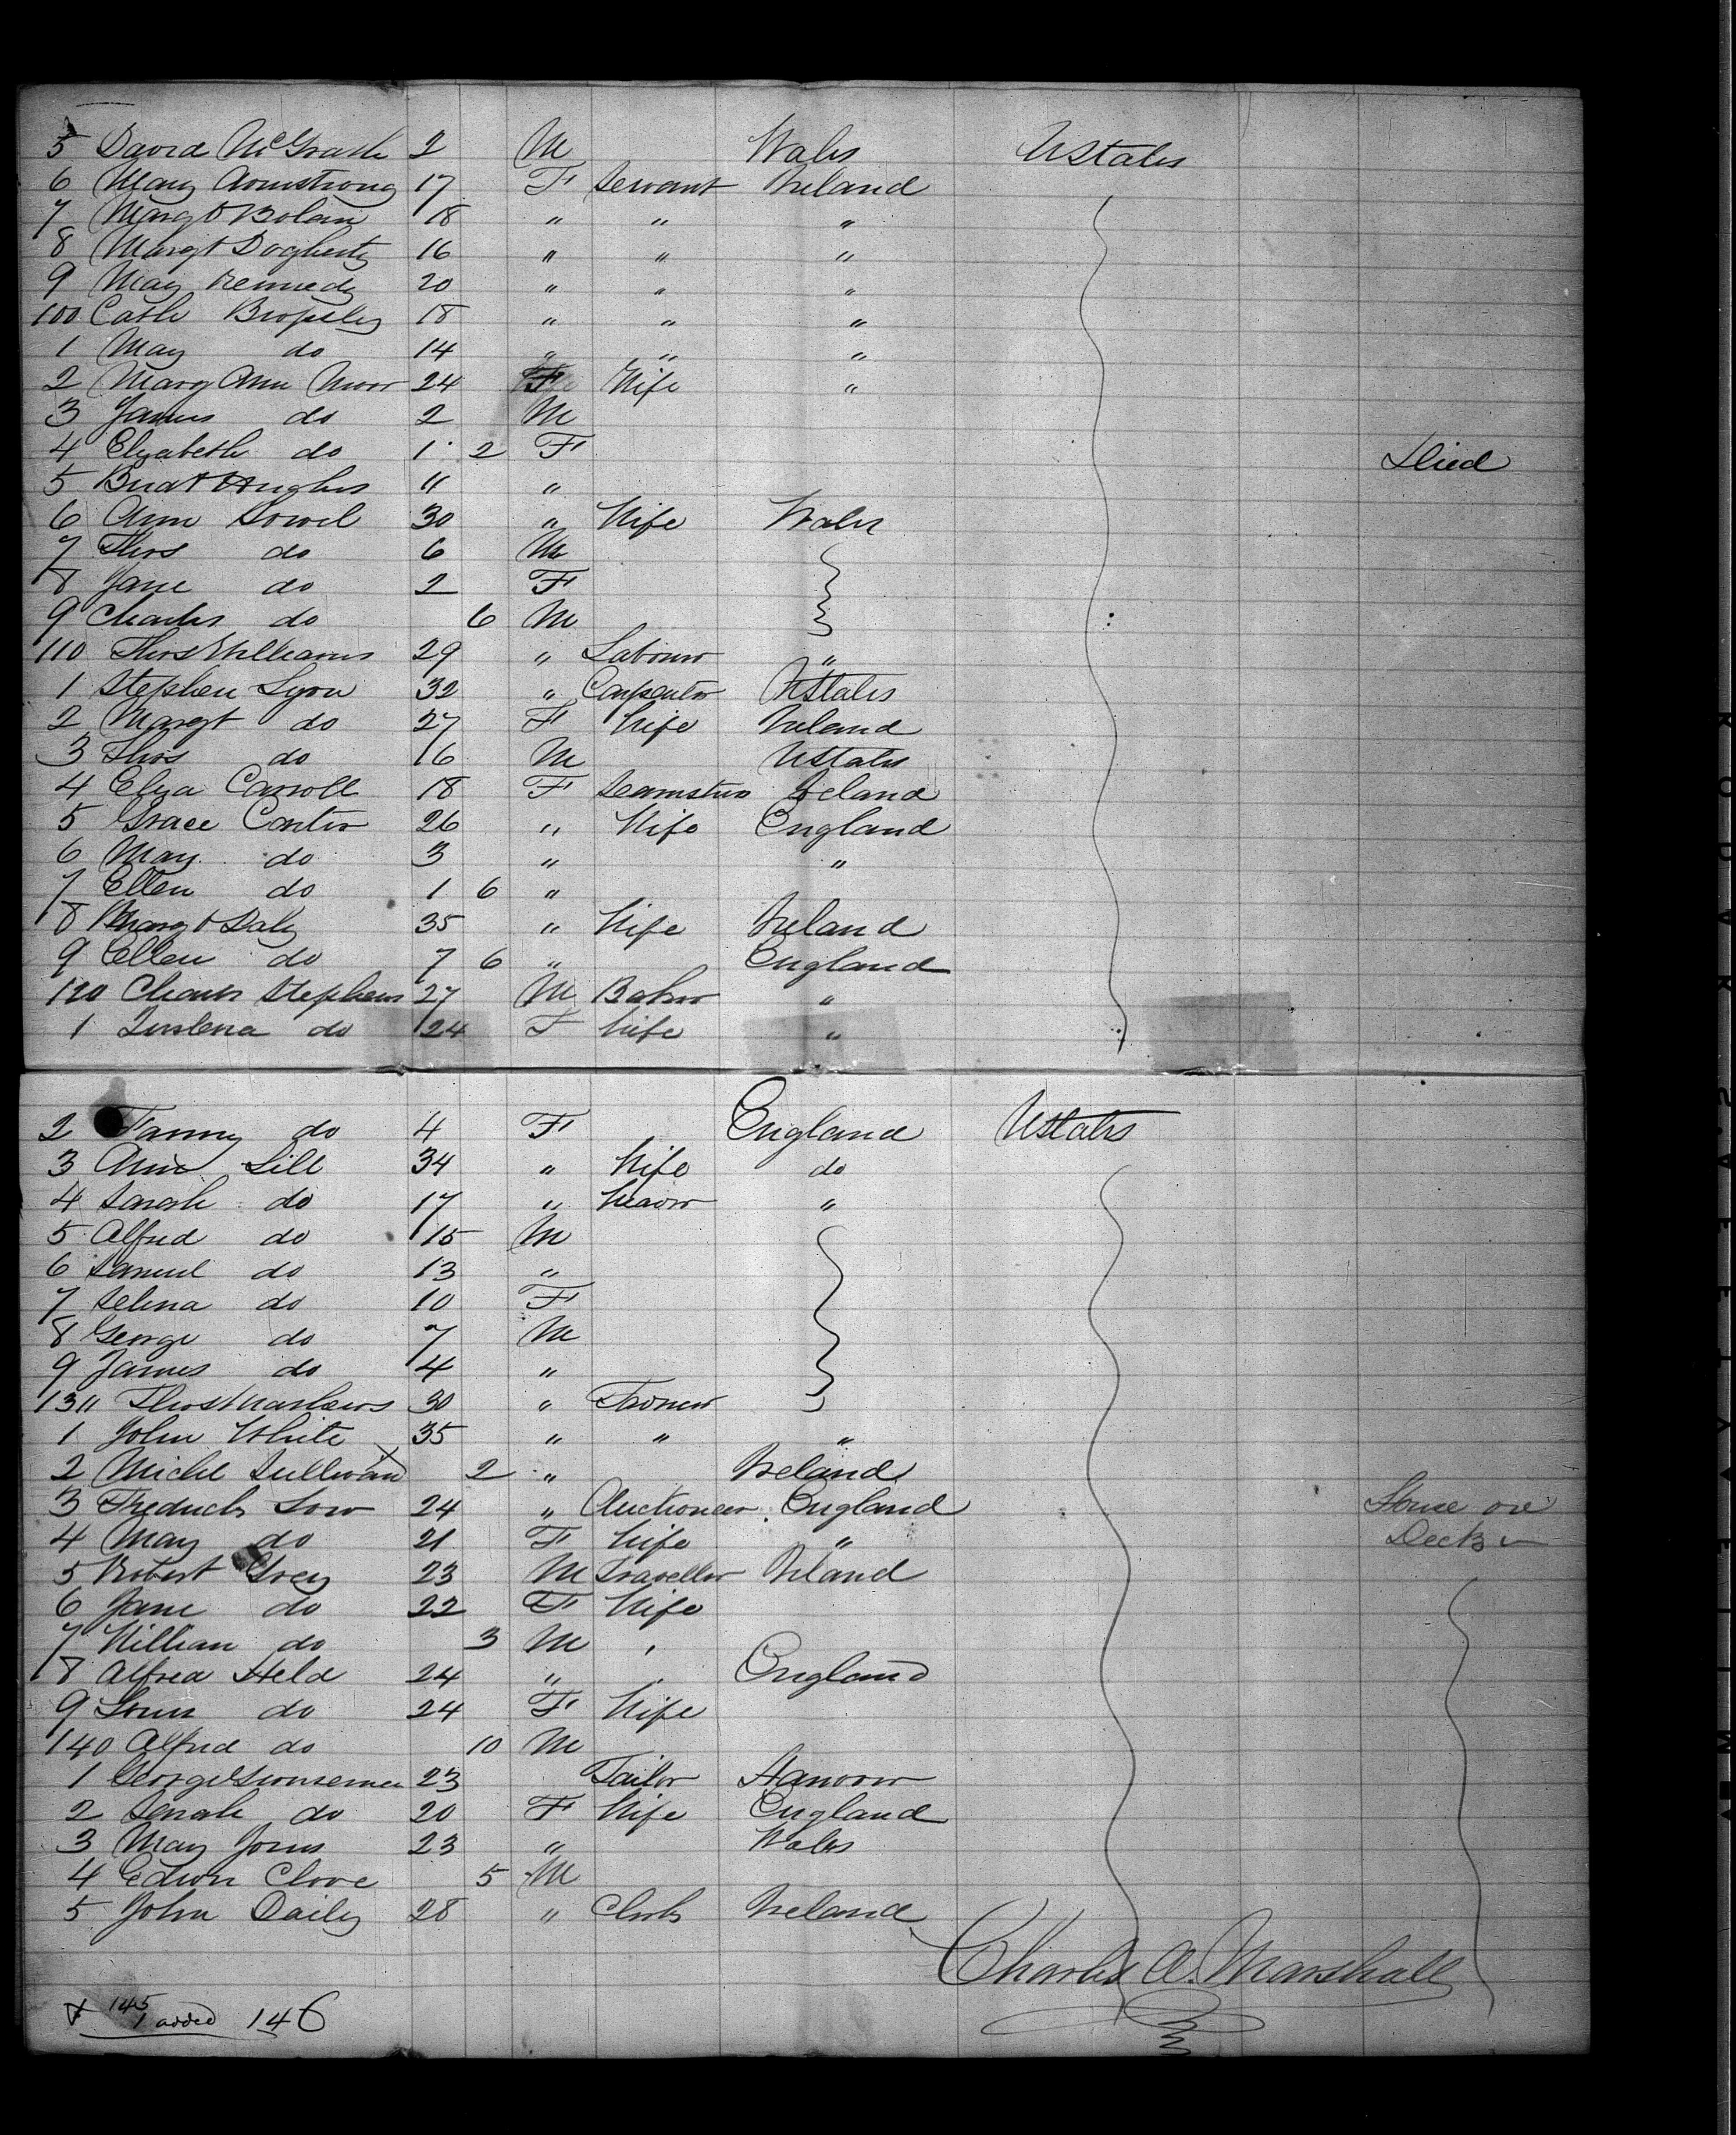 5 David McGrath 2 M Wales UStates
6 Mary Armstrong 17 F Servant Ireland
7 Margt Bolan 18 " " "
8 Margt Dogherty 16 " " "
9 Mary Kennedy 20 " " "
100 Cath 18 " " "
1 Mary do 14 " " "
2 Mary Ann Moor 24 F Wife "
3 James do 2 M
4 Elizabeth do 1 2 F Died
5 Bridt Hughes 11 "
6 Ann Powel 30 " Wife Wales
7 Thos do 6 M
8 Jane do 2 F
9 Charles do 6 M
110 Thos Williams 29 " Labourer "
1 Stephen Lyon 32 " Carpenter UStates
2 Margt do 27 F Wife Ireland
3 Thos do 16 M UStates
4 Eliza Carroll 18 F Seamstress Ireland
5 Grace Carter 26 " Wife England
6 Mary do 3 " "
7 Ellen do 1 6 "
8 Margt Daly 35 " Wife Ireland
9 Ellen do 7 6 " England
120 Charles Stephens 27 M Baker "
1 do 24 F Wife "
2 Fanny do 4 F England UStates
3 Ann Lill 34 " Wife do
4 Sarah do 17 " Weaver "
5 Alfred do 15 M
6 Samuel do 13 "
7 Selina do 10 F
8 George do 7 M
9 James do 4 "
13" Thos Mathews 30 " Farmer
1 John White 35 " " "
2 Michl Sullivan X 2 " Ireland
3 Fredrick Low 24 " Auctioneer England House on
4 Mary do 21 F Wife " Deck
5 Robert Grey 23 M Traveller Ireland
6 Jane do 22 F Wife
7 William do 3 M
8 Alfred Held 24 " England
9 Louis do 24 F Wife
140 Alfred do 10 M
1 George 23 Tailor Hanover
2 Sarah do 20 F Wife England
3 Mary Jones 23 " Wales
4 Edwin Clove 5 M
5 John Daily 28 " Clerk Ireland
Charles A. Marshall
X 145
1 added 146